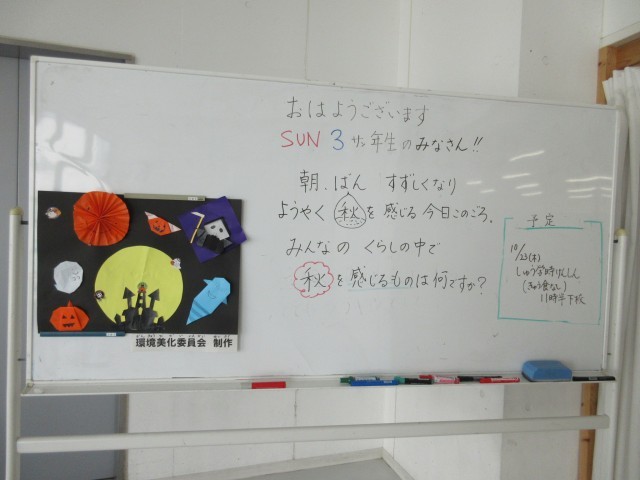 おはようございます
SUN 3 サン年生のみなさん!!
朝.ばん すずしくなり
ようやく 秋を 感じる 今日このごろ。
みんなの くらしの中で
秋を感じるものは何ですか?
予定
10/23(木)
しゅう学時けんしん
(きゅう食なし)
11時半下校
環境美化委員会 制作